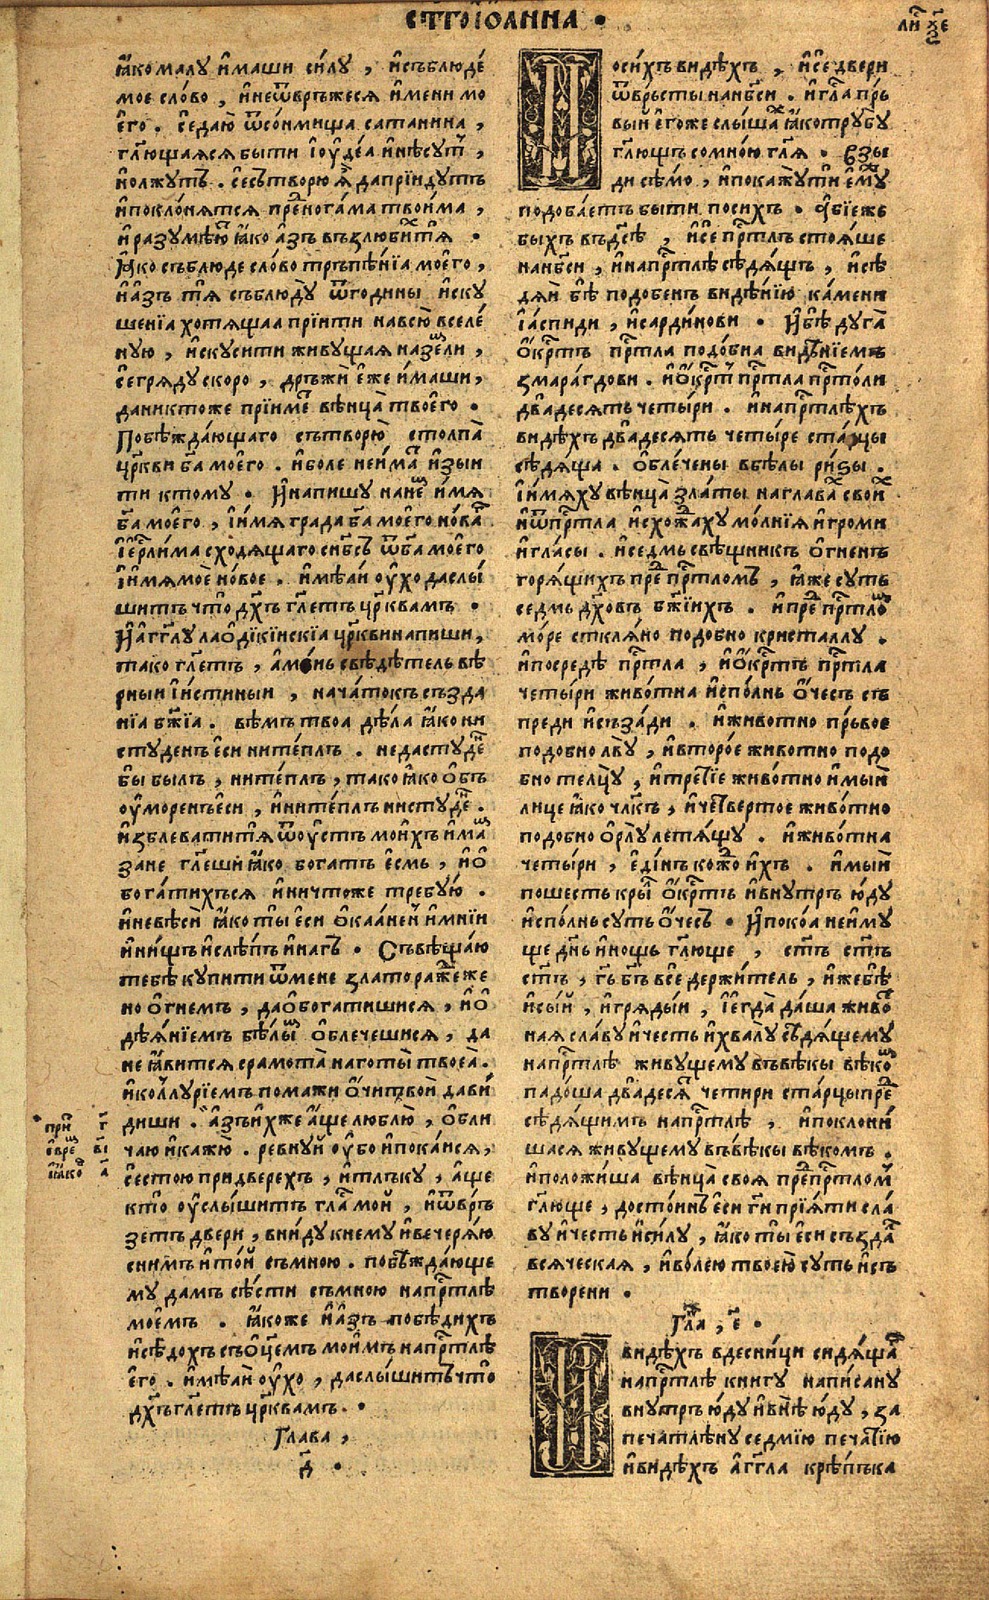 ст҃гоіѡанна •
ꙗкомалу имаши силу , исъблюде
мое слово , инеѿвръжеся имени мо
его . седаю ѿсонмища сатанина ,
гл҃ющаяся быти іоудеа инесут ,
нолжутъ . сесътворю я даприидутъ
ипоклонятся пре ногама твоима ,
иразумѣю ꙗко азъ възлюби тя •
Ꙗко съблюде слово тръпѣніа моего ,
иазъ тя съблюду ѿгодины иску
шеніа хотящаа пріити навсю вселе
ную , искусити живущая наземли ,
сегряду скоро , дръжи еже имаши ,
даниктоже пріиме вѣнца твоего •
Побѣждающаго сътворю столпа
цр҃кви б҃а моего . иболе неима изыи
ти ктому . Инапишу нане имя
б҃а моего , иимя града б҃а моего нова
іер҃лима сходящаго снб҃съ ѿб҃а моего
иимямое новое . имѣаи оухо даслы
шитъ что дх҃ъ гл҃етъ цр҃квамъ •
Иагг҃лу лаодікійскіа цр҃квинапиши ,
тако гл҃етъ , аминь свѣдѣтель вѣ
рныи иистиныи , начатокъ създа
ніа бж҃іа . вѣмъ твоа дѣла ꙗко ни
студенъ еси нитеплъ . недастуде
бы былъ , нитеплъ , тако ꙗко обѣ
оуморенъеси , инитеплъ нистуде .
изблеватитя ѿоустъ моихъ има
зане гл҃еши ꙗко богатъ есмь , ио
богатихъся иничтоже требую .
иневѣси ꙗко ты еси окаанеи имніи
инищъ ислѣпъ инагъ • Съвѣщаю
тебѣ купити ѿмене злато раждеже
но огнемъ , даобогатишися , ио
дѣяніемъ бѣлы облечешися , да
не ꙗвится срамота наготы твоеа .
иколлуріемъ помажи очитвои дави
диши . азъ ихже аще люблю , обли
чаю икажю . ревнуй оубо ипокайся ,
сестою придверехъ , итлъку , аще
кто оуслышитъ гла мой , иѿвръ
зетъ двери , вниду кнему ивечеряю
снимъ итой съмною . побѣждающе
му дамъ сѣсти съмною напр҃тлѣ
моемъ . ꙗкоже иазъ побѣдихъ
исѣдохъ съоцемъ моимъ напр҃тлѣ
его . имѣаи оухо , даслышитъ что
дх҃ъ гл҃етъ цр҃квамъ . •
Глава ,
д҃ •
По сихъ видѣхъ , исе двери
ѿвръсты нанб҃си . игла прь
выи егоже слыша ꙗкотрубу
гл҃ющъ сомною гл҃я . взы
ди сѣмо , ипокажути ему
подобаетъ быти посихъ . абіеже
быхъ въдс҃ѣ , исе пр҃тлъ стояше
нанб҃си , инапр҃тлѣ сѣдящъ , исѣ
дяй бѣ подобенъ видѣнію камени
іаспиди , исардинови . Ибѣ дуга
окр҃тъ пр҃тла подобна видѣніемъ
змарагдови . иокр҃тъ пр҃тла пр҃толи
двадесять четыри . инапр҃тлѣхъ
видѣхъ двадесять четыре старцы
сѣдяща . облечены вбѣлы ризы .
иимяху вѣнца златы наглава свои
иѿпр҃тла исхожаху молнія игроми
игласы . иседмь свѣщникъ огненъ
горящихъ пре пр҃тломъ , ꙗже суть
седмь дх҃овъ бж҃іихъ . ипре пр҃тло
море стькляно подобно кристаллу .
ипосредѣ пр҃тла , иокр҃тъ пр҃тла
четыри животна исполнь очесъ съ
преди исъзади . иживотно прьвое
подобно льву , ивторое животно подо
бно телцу , итретіе животно имый
лице ꙗко чл҃къ , ичетвертое животно
подобно орлу летящу . иживотна
четыри , единъ кождо ихъ . имый
пошесть крил окр҃тъ ивнутрь юду
исполньсуть очесъ . Ипокоа нейму
ще дн҃ь инощь гл҃юще , ст҃ъ ст҃ъ
ст҃ъ , г҃ь б҃ъ вседержитель , ижебѣ
исый , игрядый , иегда даша живо
ная славу ичесть ихвалу сѣдящему
напр҃тлѣ живущему въвѣкы вѣко
падоша двадеся четири старцыпре
сѣдящимъ напр҃тлѣ , ипоклони
шася живущему въвѣкы вѣкомъ .
иположиша вѣнца своя препр҃тлом
гл҃юще , достоинъ еси г҃и пріяти сла
ву ичесть исилу , ꙗко ты еси създа
всяческая , иволею твоею суть исъ
творени .
Гла , е҃ .
Ивидѣхъ вдесници сидяща
напр҃тлѣ книгу написану
внутрь юду ивнѣ юду , за
печатлѣну седмію печатію
ивидѣхъ агг҃ла крѣпъка